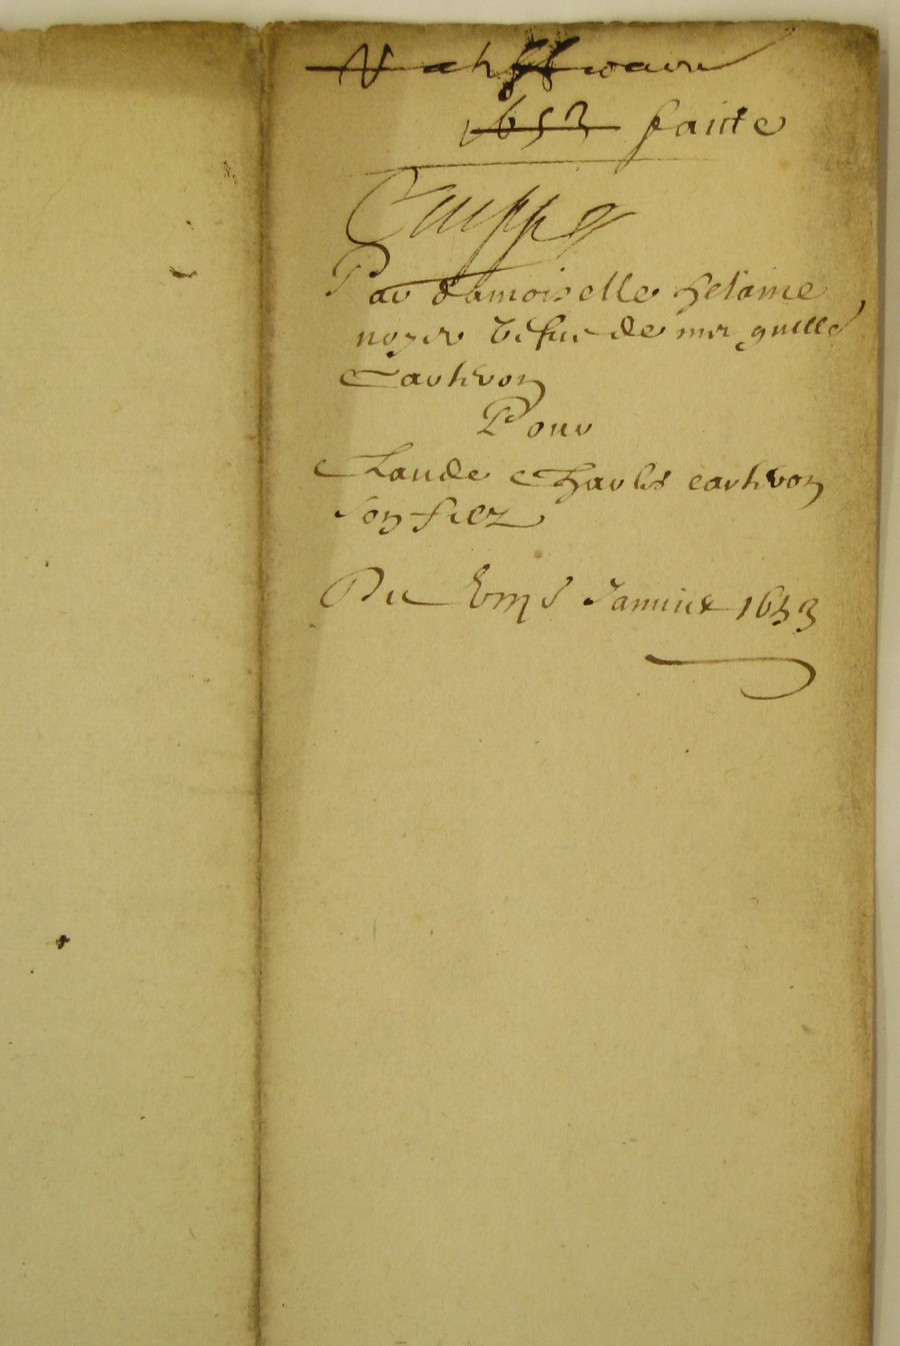 1653 faitte
Par damoiselle helaine
noyer vefue de mre guille
Cartiron
Pour
Claude Charles cartiron
son filz
Du Janvier 1653